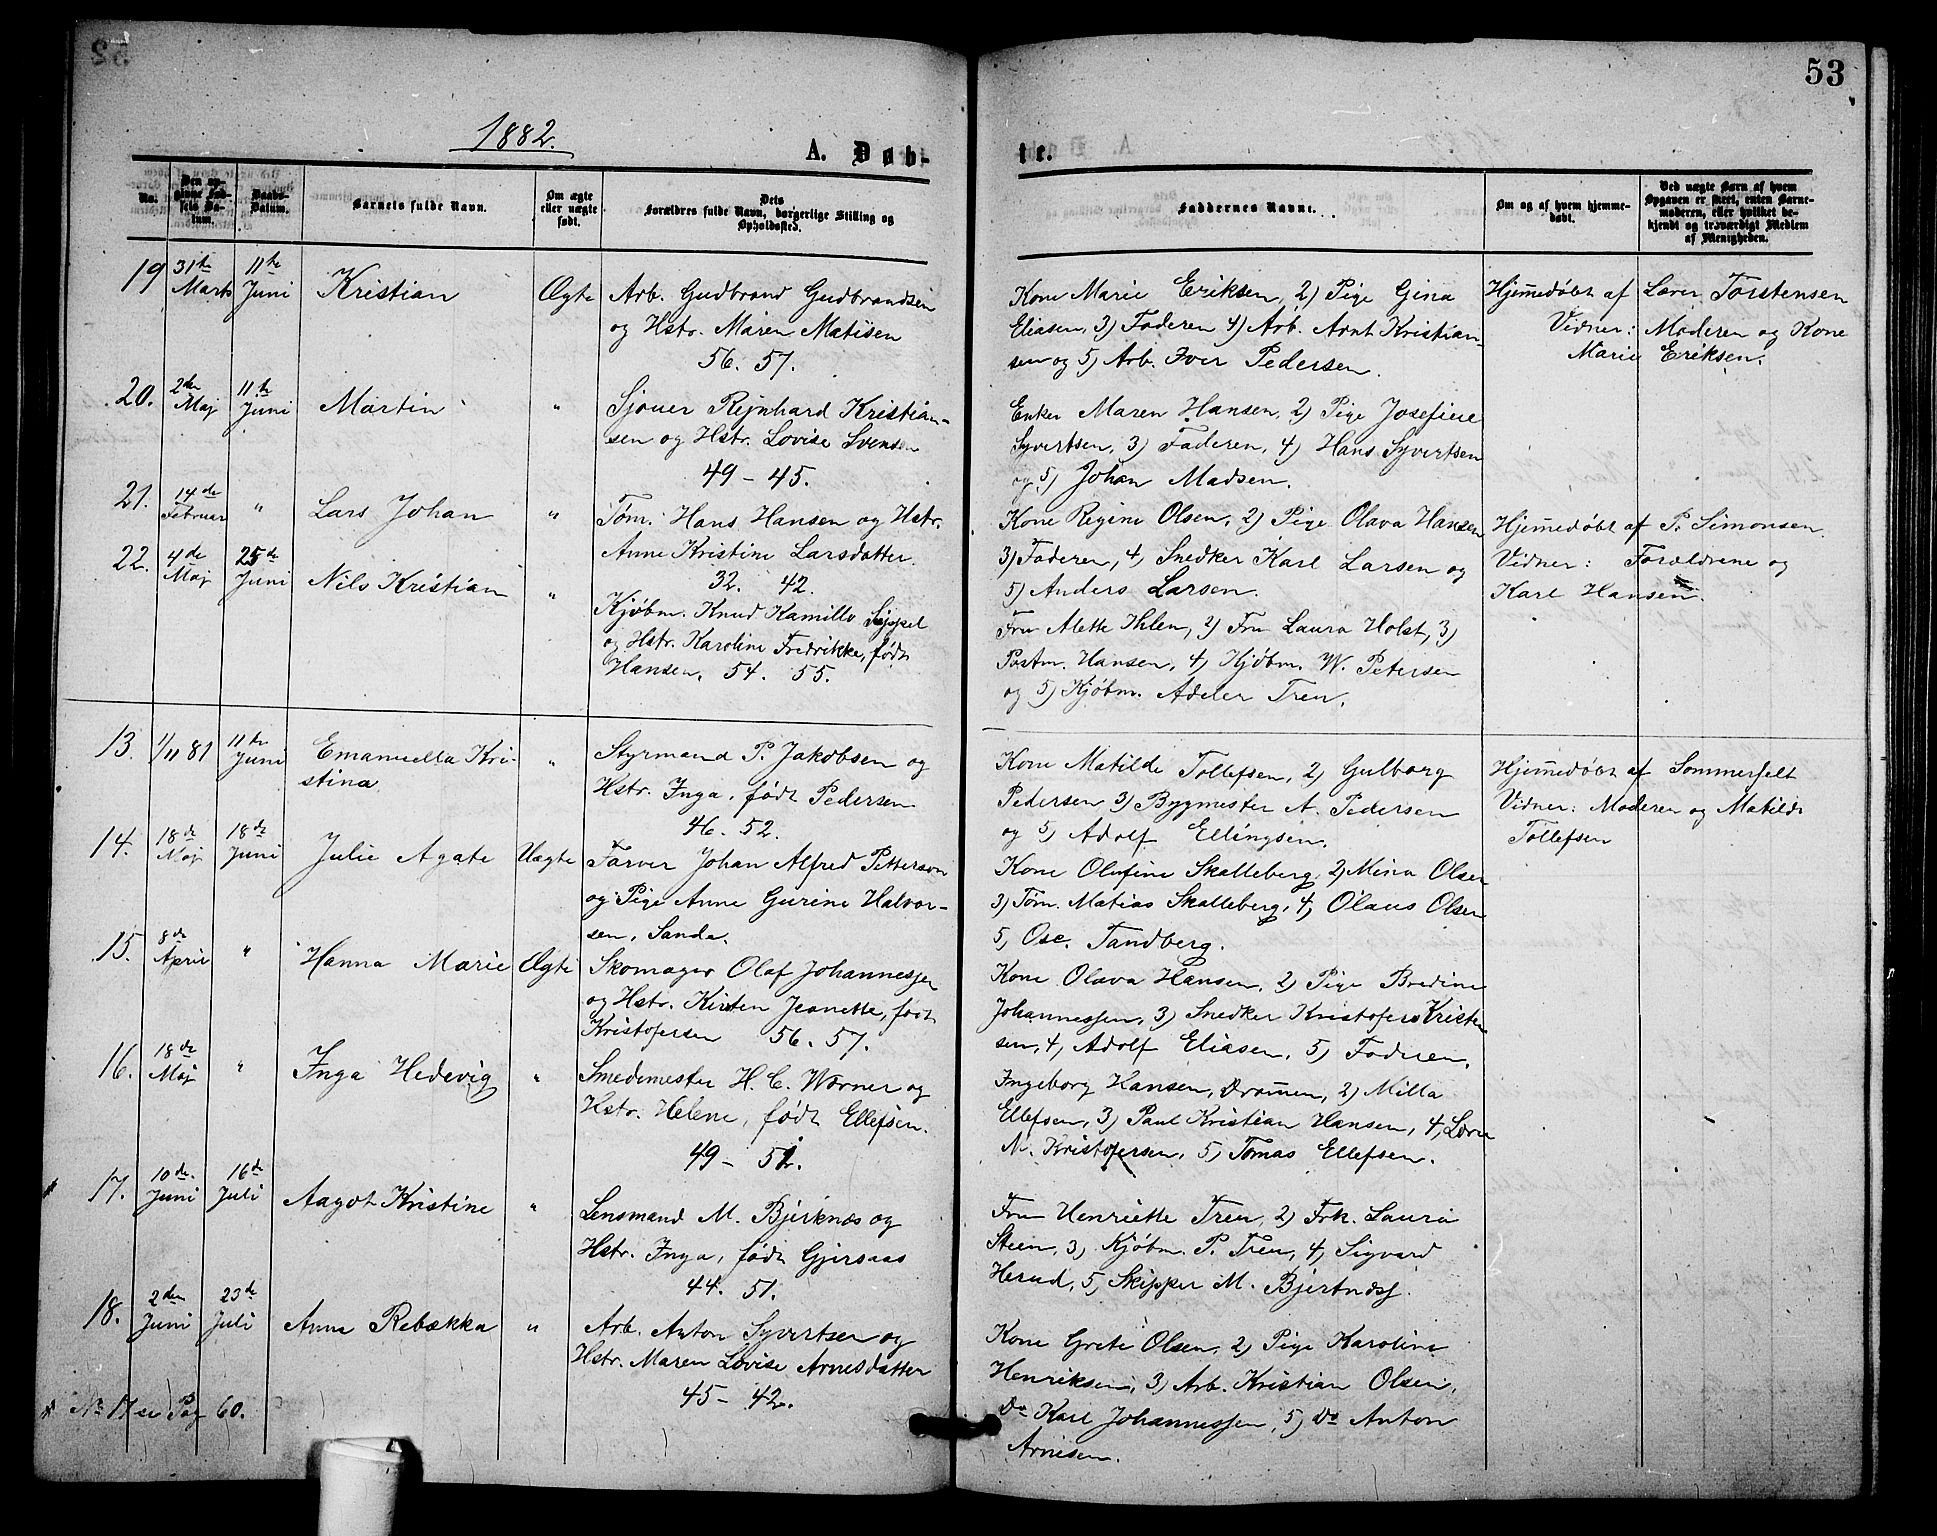 53
1882.
A. Døb-
te.
No.
Den op-
givne Fød-
sels Da-
tum.
Daabs-
Datum.
Barnets fulde Navn.
Om ægte
eller uægte
født.
Dets
Forældres fulde Navn, borgerlige Stilling og
Opholdssted.
Faddernes Navne.
Om og af hvem hjemme-
døbt.
Ved uægte Børn af hvem
Opgaven er skeet, enten Barne-
moderen, eller hvilket be-
kjendt og troværdigt Medlem
af Menigheden.
19 31te Marts 11te Juni Kristian Ægte Arb. Gudbrand Gudbrandsen
og Hstr. Maren Matisen
56. 57.
Kone Marie Eriksen, 2) Pige Gina
Eliasen, 3) Faderen 4) Arb. Arnt Kristian-
sen og 5) Arb. Iver Pedersen.
Hjemmedøbt af Lærer Torstensen
Vidner: Moderen og Kone
Marie Eriksen.
20. 2den Maj 11te Juni Martin " Sjouer Rejnhard Kristian-
sen og Hstr. Lovise Svensen
49 - 45.
Enken Maren Hansen, 2) Pige Josefine
Syvertsen, 3) Faderen, 4) Hans Syvertsen
og 5) Johan Madsen.
21. 14de Februar " Lars Johan " Tøm. Hans Hansen og Hstr.
Anne Kristine Larsdatter.
32. 42.
Kone Regine Olsen, 2) Pige Olava Hansen
3) Faderen, 4, Snedker Karl Larsen og
5) Anders Larsen.
Hjemmedøbt af P. Simonsen.
Vidner: Forældrene og
Karl Hansen.
22. 4de Maj 25de Juni Nils Kristian " Kjøbm. Knud Kamillo
og Hstr. Karoline Fredrikke, født
Hansen. 54. 55.
Fru Alette Ihlen, 2) Fru Laura Holst, 3)
Postm. Hansen, 4, Kjøbm. W. Petersen
og 5) Kjøbm. Adeler Treu.
13. 1/11 81 11te Juni Emanuella Kri-
stina " Styrmand P. Jakobsen og
Hstr. Inga, født Pedersen
46. 52.
Kone Matilde Tollefsen, 2) Gulborg
Pedersen, 3) Bygmester A. Pedersen
og 5) Adolf Ellingsen.
Hjemmedøbt af Sommerfelt
Vidner: Moderen og Matilde
Tollefsen
14. 18de Maj 18de Juni Julie Agate Uægte Farver Johan Alfred Petterson
og Pige Anne Gurine Halvor-
sen, Sande.
Kone Olufine Skalleberg, 2) Mina Olsen
3) Tøm. Matias Skalleberg, 4, Olaus Olsen
5, Osc. Tandberg.
15. 8de April " Hanna Marie Ægte Skomager Olaf Johannessen
og Hstr. Kirsten Jeanette, født
Kristofersen 56. 57.
Kone Olava Hansen, 2) Pige Bredine
Johannessen, 3) Snedker Kristofer Kristen
sen, 4, Adolf Eliasen, 5) Faderen.
16. 18de Maj " Inga Hedevig " Smedemester H. C. Wørner og
Hstr. Helene, født Ellefsen.
49 - 51.
Ingeborg Hansen, Drammen, 2) Milla
Ellefsen, 3) Paul Kristian Hansen, 4, Lærer
N. Kristofersen, 5) Tomas Ellefsen.
17. 10de Juni 16de Juli Aagot Kristine " Lensmand M. Bjerknæs og
Hstr. Inga, født Gjersaas
44. 51.
Fru Henriette Treu, 2) Frk. Laura
Steen, 3, Kjøbm. P. Treu, 4, Sigvard
Herud, 5, Skipper M. Bjerknæs.
18. 2den Juni 23de Juli Anne Rebækka " Arb. Anton Syvertsen og
Hstr. Maren Lovise Arnesdatter
45 - 42.
Kone Grete Olsen, 2) Pige Karoline
Henriksen, 3) Arb. Kristian Olsen,
Do Karl Johannessen, 5) Do Anton
Arnesen.
No 17 se Pag 60.